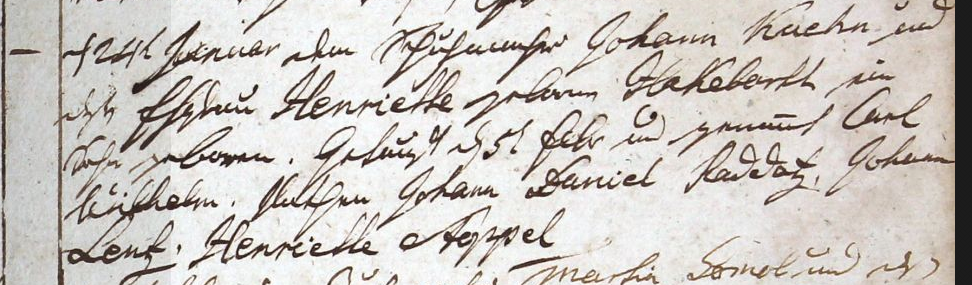 d 24t Januar dem Schuhmacher Johann Kuehn und
deß Ehefrau Henriette geborne Hakebarth ein
Sohn geboren. Getauft d 5t Febr und genannt Carl
Wilhelm. Pathen Johann Daniel Raddatz, Johann
Lentz, Henriette Appel
Martin und